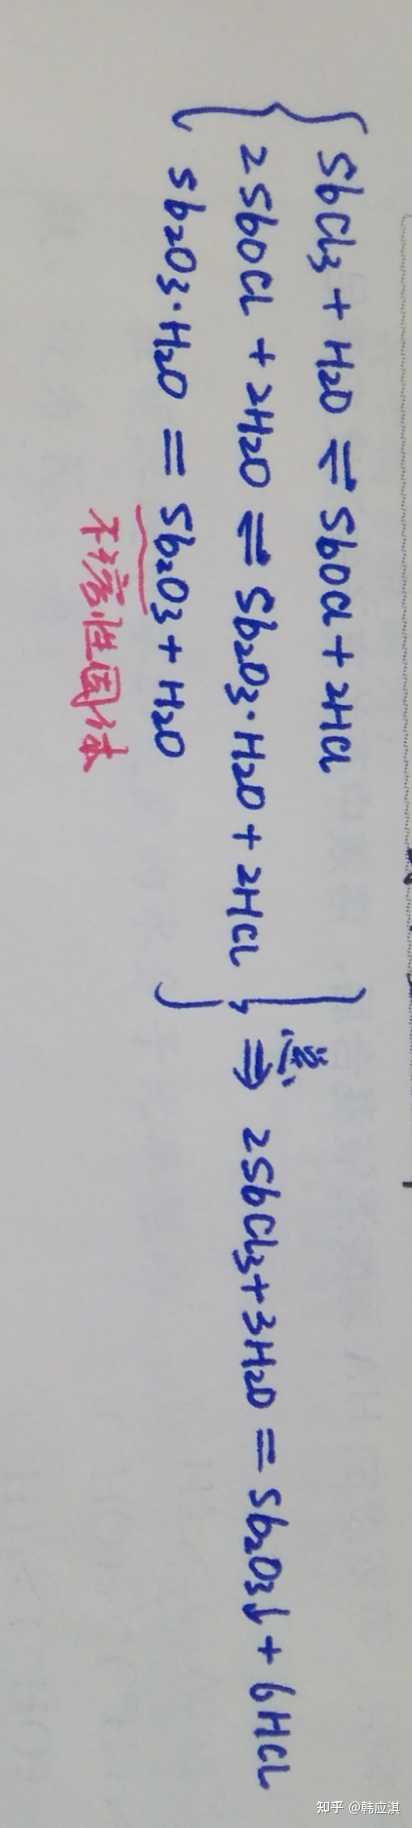 SbCl3 + H2O ⇌ SbOCl + 2HCl
2SbOCl + 2H2O ⇌ Sb2O3·H2O + 2HCl,
Sb2O3·H2O = Sb2O3 + H2O
不溶性固体
总
⇒ 2SbCl3 + 3H2O = Sb2O3↓ + 6HCl
知乎 @韩应淇